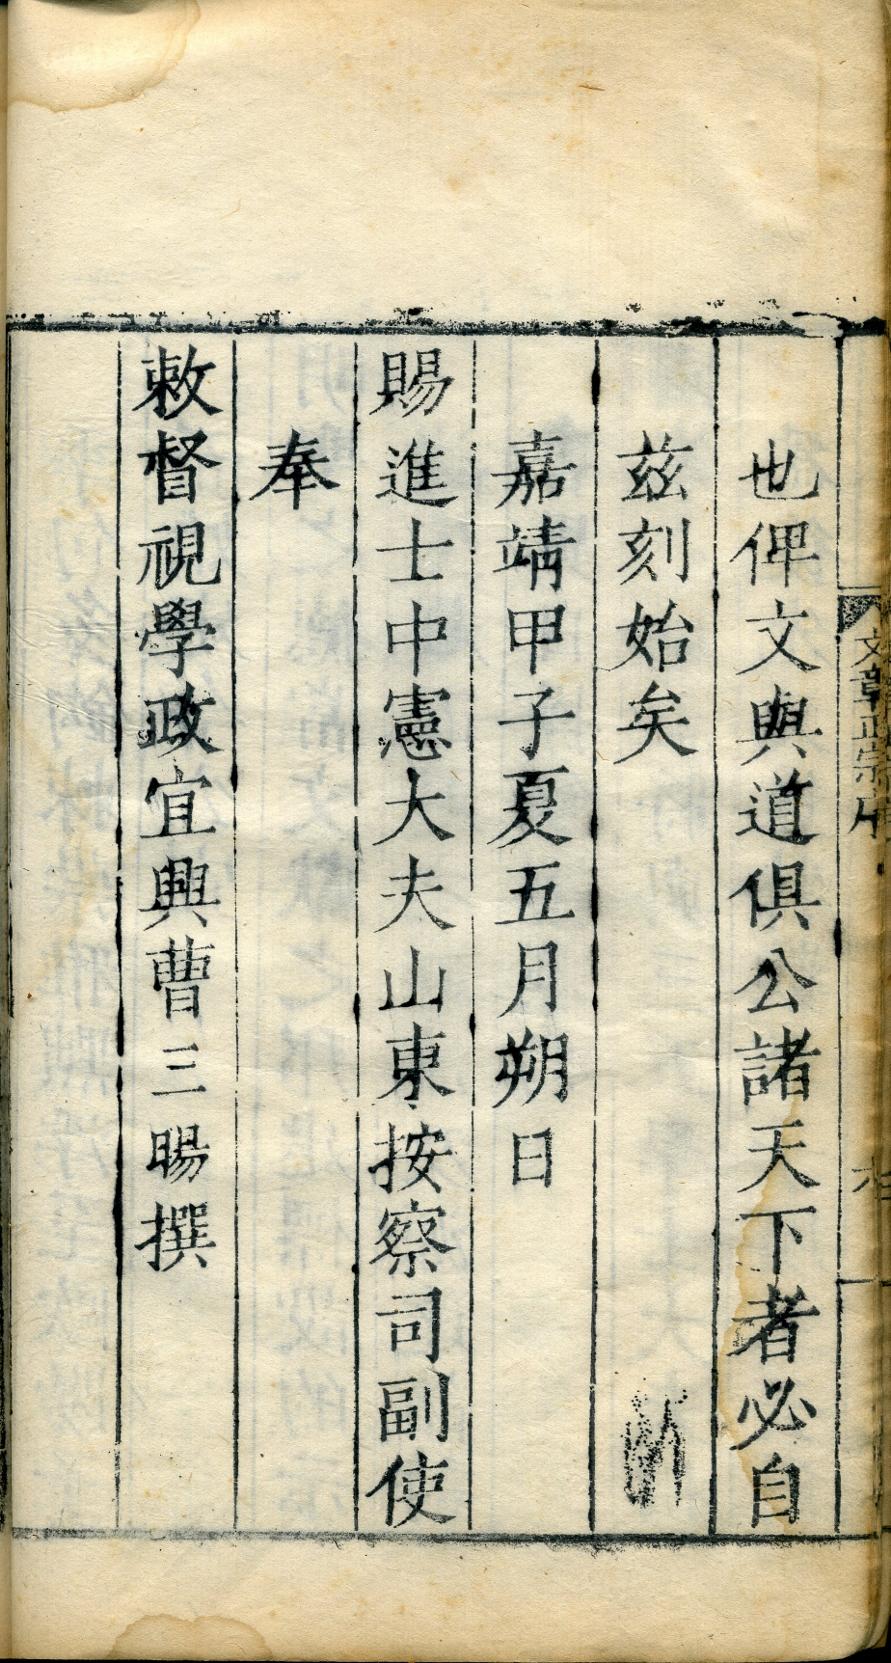 文章正宗序
也俾文與道俱公諸天下者必自
茲刻始矣
嘉靖甲子夏五月朔日
賜進士中憲大夫山東按察司副使
奉
敕督視學政宜興曹三暘撰